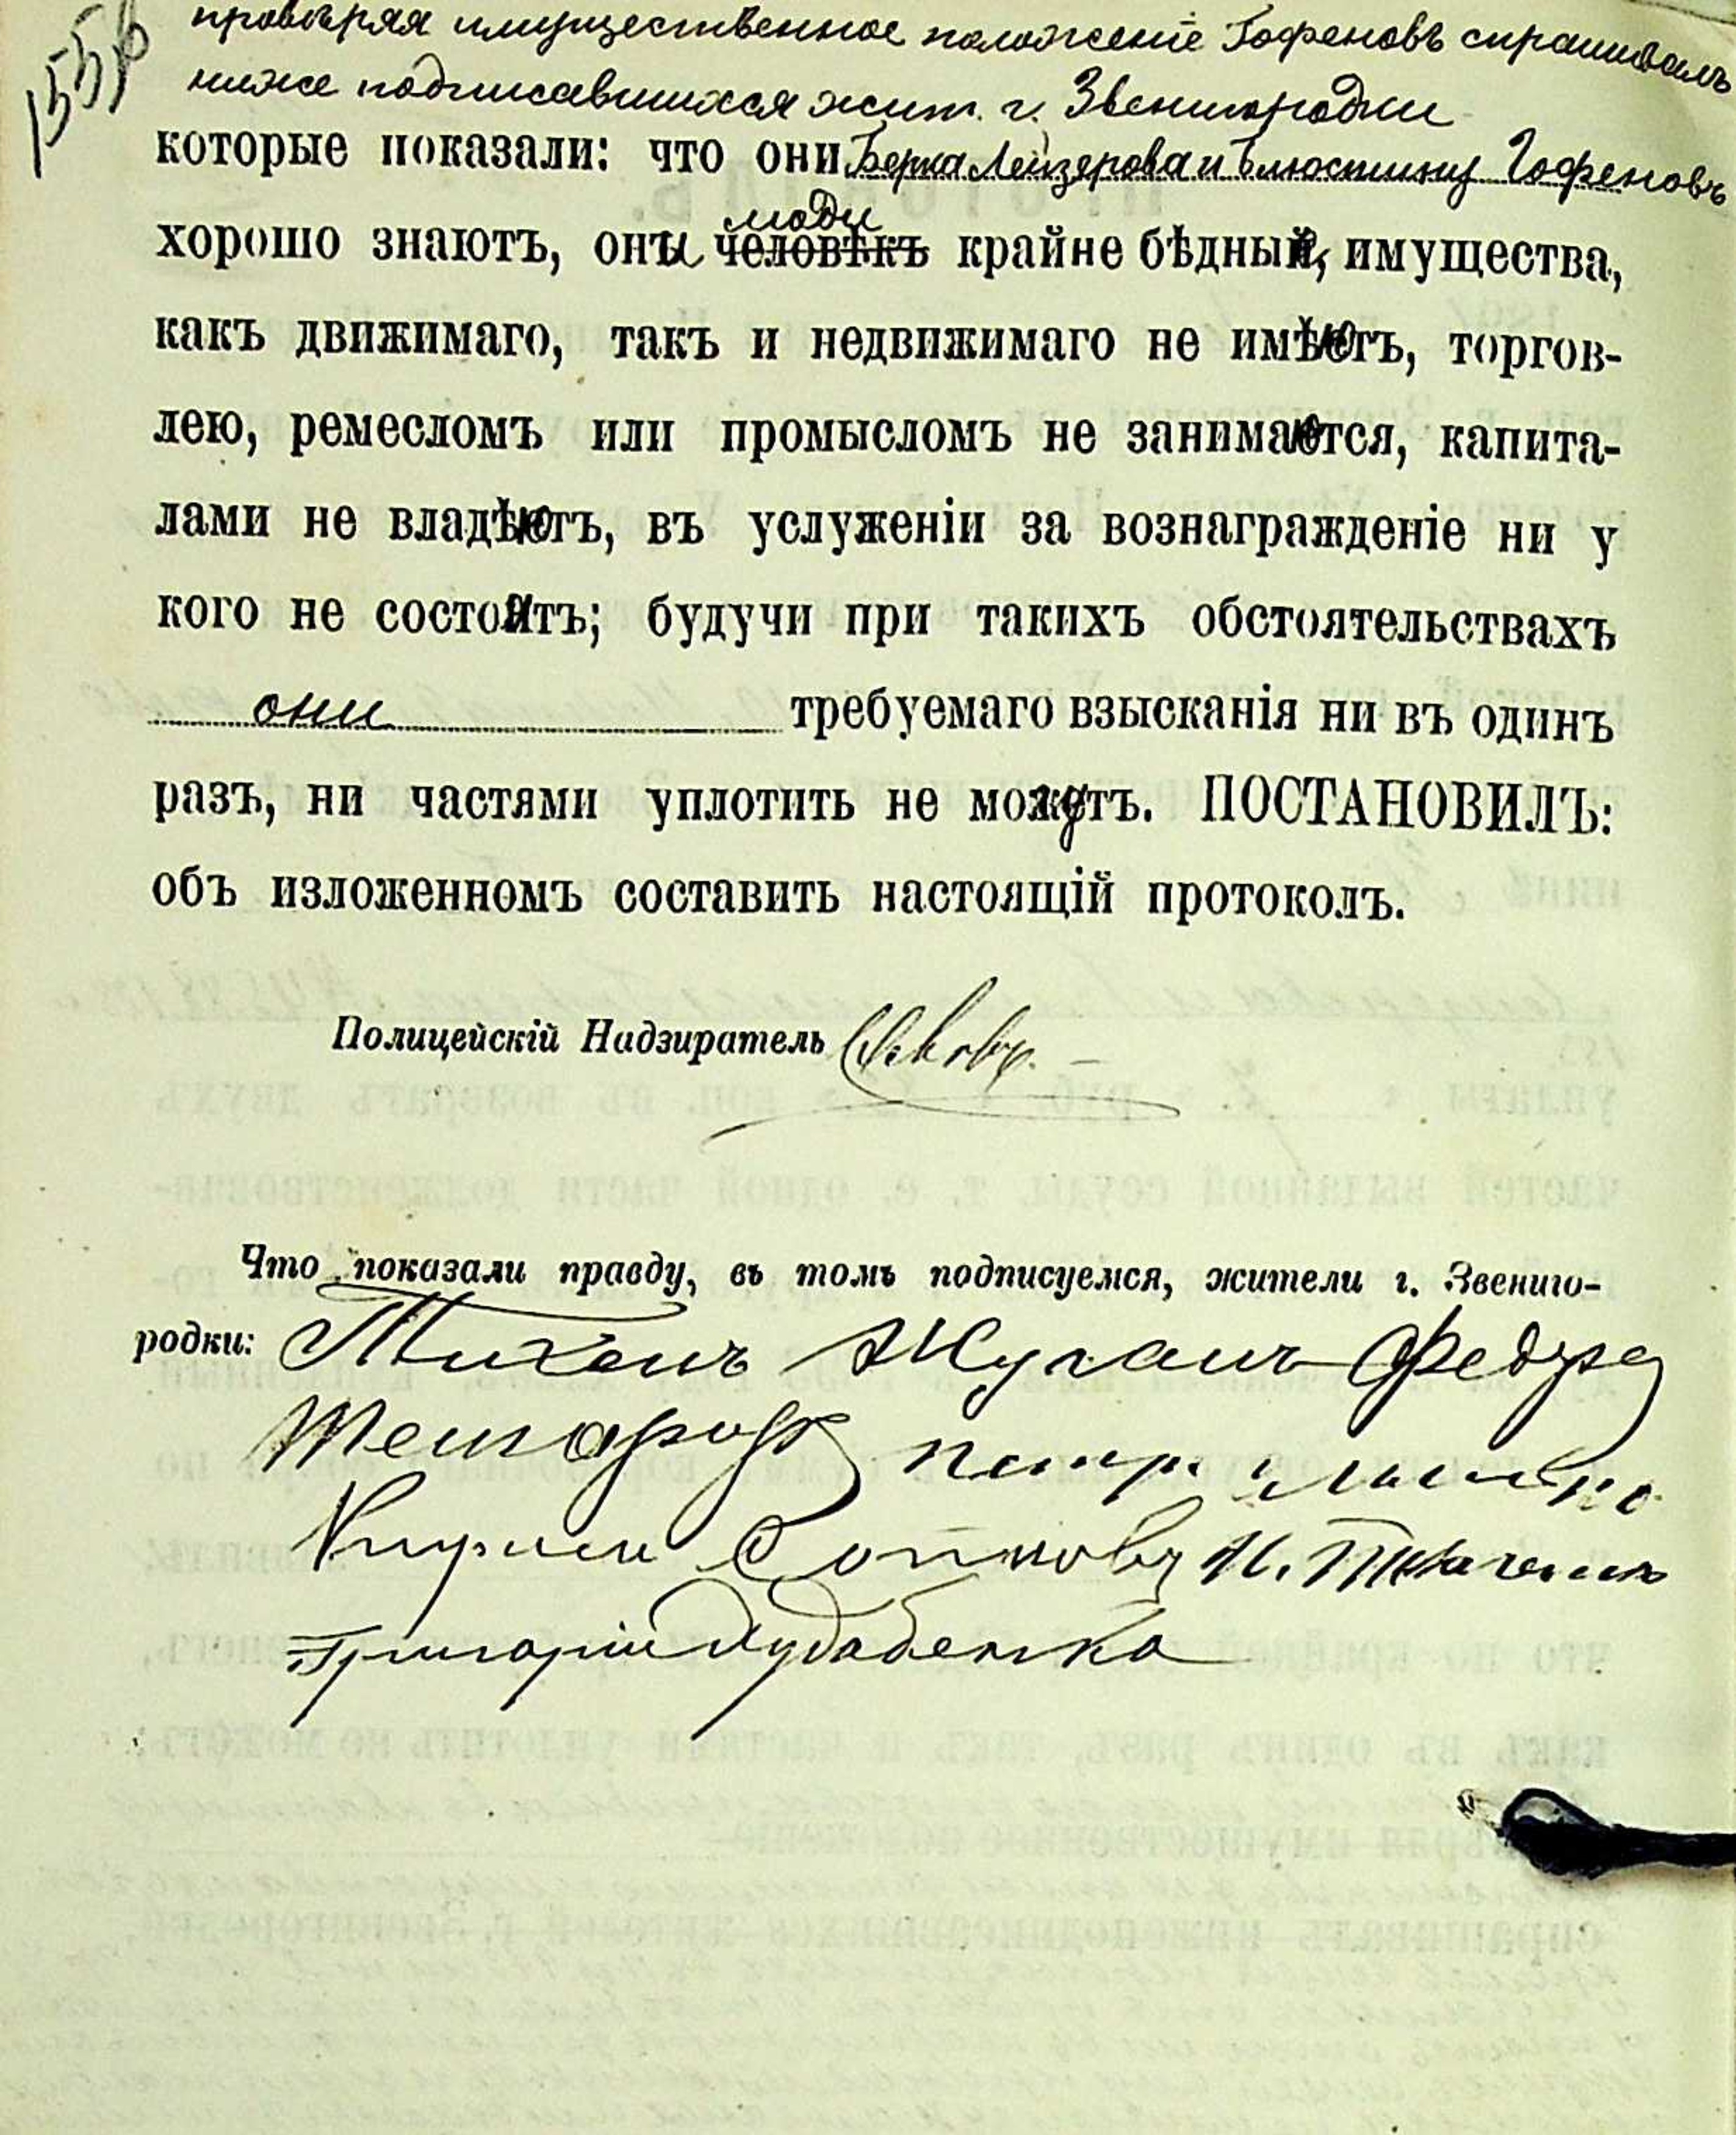 155б
провѣряя имущественное положеніе Гофеновъ спрашивалъ
ниже подписавшихся жит. г. Звенигородки
которые показали: что они Берка Лейзерова и Гофеновъ
люди
хорошо знаютъ, они человѣкъ крайне бѣдные, имущества,
какъ движимаго, такъ и недвижимаго не имѣютъ, торгов-
лею, ремесломъ или промысломъ не занимаются, капита-
лами не владѣютъ, въ услуженіи за вознагражденіе ни у
кого не состоятъ; будучи при такихъ обстоятельствахъ
они требуемаго взысканія ни въ одинъ
разъ, ни частями уплотить не могутъ. ПОСТАНОВИЛЪ:
объ изложенномъ составить настоящій протоколъ.
Полицейскій Надзиратель
Что показали правду, въ томъ подписуемся, жители г. Звениго-
родки: Тихонъ Жуганъ Федоръ
Петр
Кирилъ Сотниковъ И. Ткаченко
Григорій Худобенко